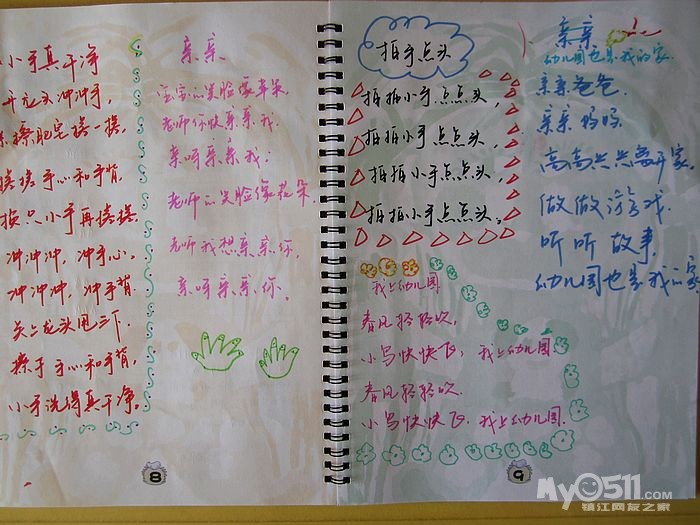 小手真干净
开龙头冲冲手,
擦肥皂搓一搓,
搓搓手心和手背,
换只小手再搓搓,
冲冲冲,冲手心,
冲冲冲,冲手背.
关上龙头甩三下.
擦手手心和手背,
小手洗得真干净。
亲亲
宝宝的笑脸像苹果
老师你快亲亲我.
亲呀亲亲我;
老师的笑脸像花朵
老师我想亲亲你,
亲呀亲亲你。
8
拍手点头
拍拍小手点点头,
拍拍小手点点头,
拍拍小手点点头,
拍拍小手点点头。
我上幼儿园
春风轻轻吹,
小鸟快快飞,我上幼儿园
春风轻轻吹.
小鸟快快飞,我上幼儿园.
亲亲
幼儿园也是我的家.
亲亲爸爸.
亲亲妈妈.
高高兴兴离开家.
做做游戏.
听听故事.
幼儿园也是我的家
9
My0511.com
镇江网友之家